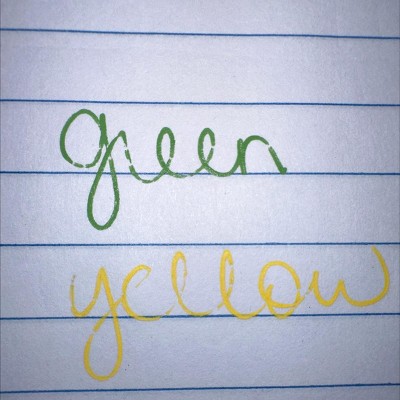 green
yellow